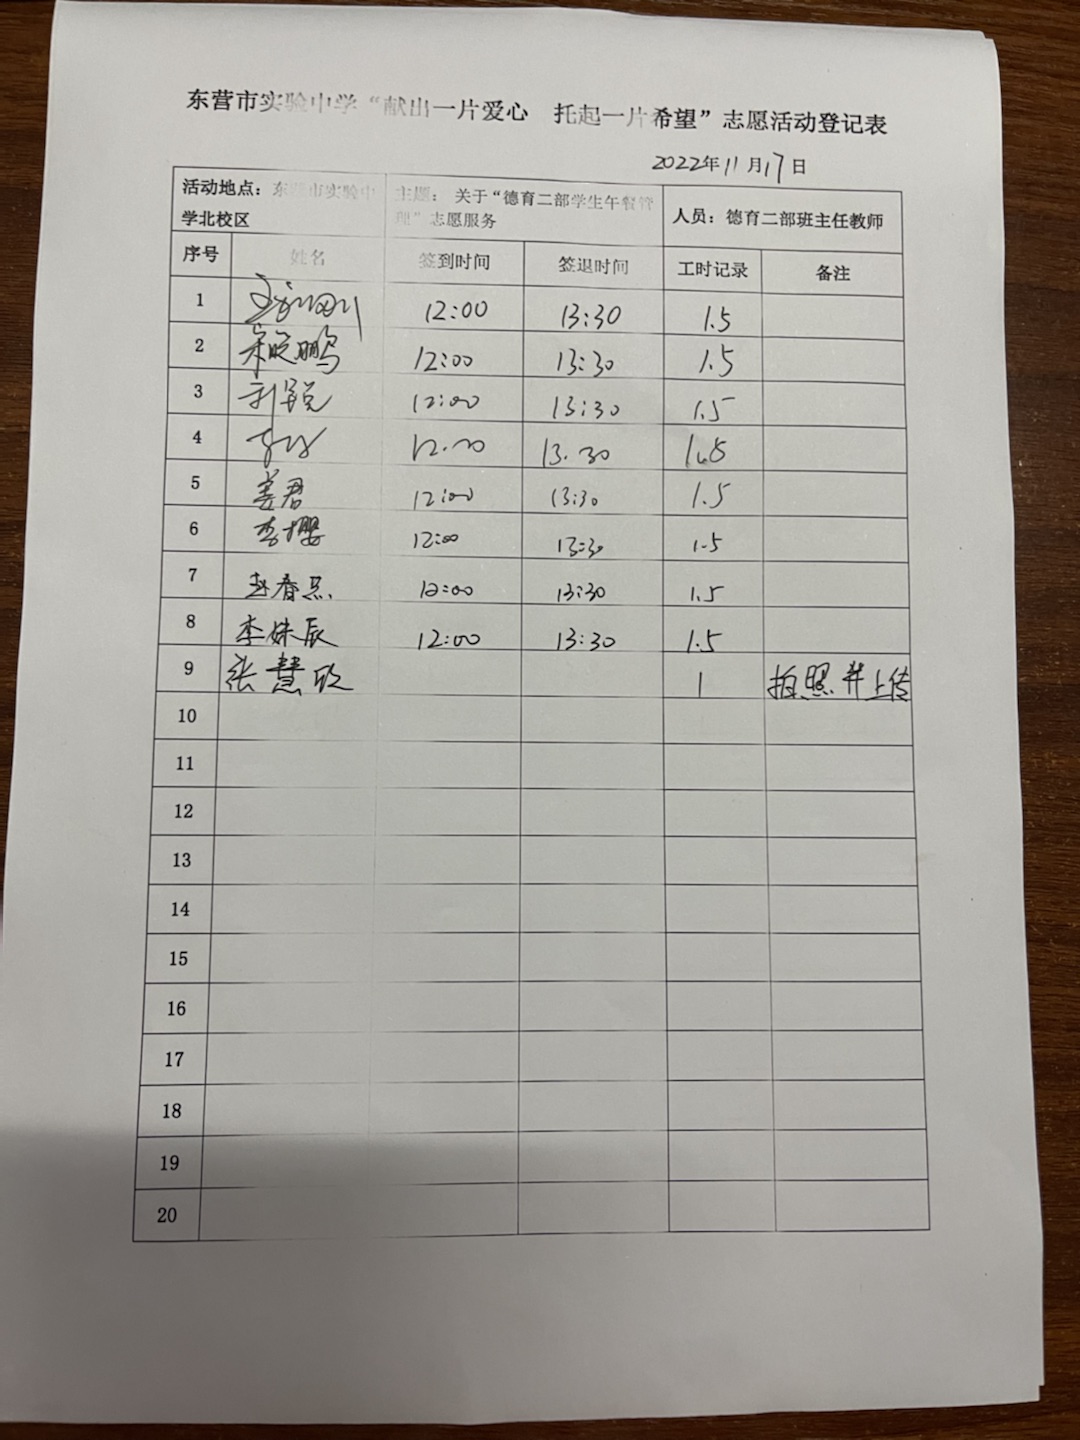 东营市实验中学“献出一片爱心 托起一片希望”志愿活动登记表
2022年11月17日
活动地点：东营市实验中学北校区 主题：关于“德育二部学生午餐管理”志愿服务 人员：德育二部班主任教师
序号 姓名 签到时间 签退时间 工时记录 备注
1 12:00 13:30 1.5
2 宋晓鹏 12:00 13:30 1.5
3 刘锐 12:00 13:30 1.5
4 12:00 13.30 1.5
5 姜君 12:00 13:30 1.5
6 李樱 12:00 13:30 1.5
7 赵春 12:00 13:30 1.5
8 李姝辰 12:00 13:30 1.5
9 张慧欣 1 拍照并上传
10
11
12
13
14
15
16
17
18
19
20